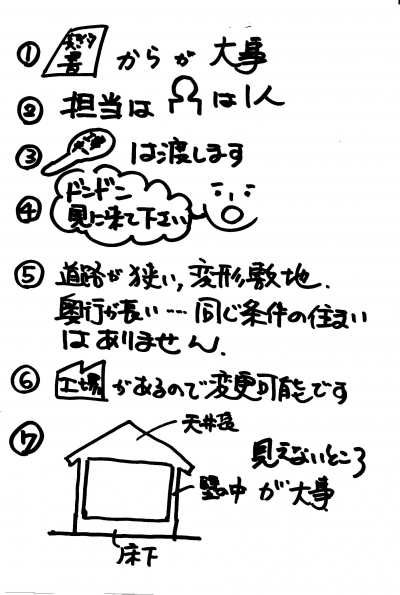 ① 契約書 からが 大事
② 担当は は1人
③ は渡します
④ ドンドン
見に来て下さい
⑤ 道路が狭い,変形敷地.
奥行が長い…同じ条件の住まい
はありません.
⑥ 工場 があるので変更可能です
⑦
天井裏
見えないところ
壁の中 が大事
床下